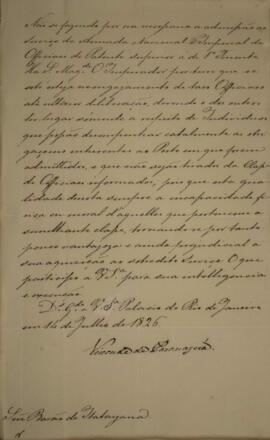 Não se fazendo por ora necessaria a admissão ao
Serviço da Armada Nacional e Imperial de
Officiaes de Patente superior a de 1º Tenente
Ha S. Mag.e O Imperador por bem que se
sobr'esteja no engajamento de taes Officiaes
até ulterior deliberação, devendo a dar entre
ter lugar sómente a respeito de Individuos
que possão desempenhar cabalmente as obri
gaçoens inherentes ao Posto em que forem
admittidos, e que não sejão tirados da Classe
de Officiaes reformados, por que esta qua
lidade denota sempre a incapacidade fi
zica ou moral d'aquelles que pertencem a
similhante classe, tornando-se por tanto
pouco vantajoza e ainda prejudicial a
sua aquisição ao sobredito Serviço. O que
participo a V. S.ª para sua intelligencia
e execução.
D.s G.de a V. S.ª Palacio do Rio de Janeiro
em 14 de Julho de 1826
Visconde de Paranaguá
Snr. Barão de Itabayana